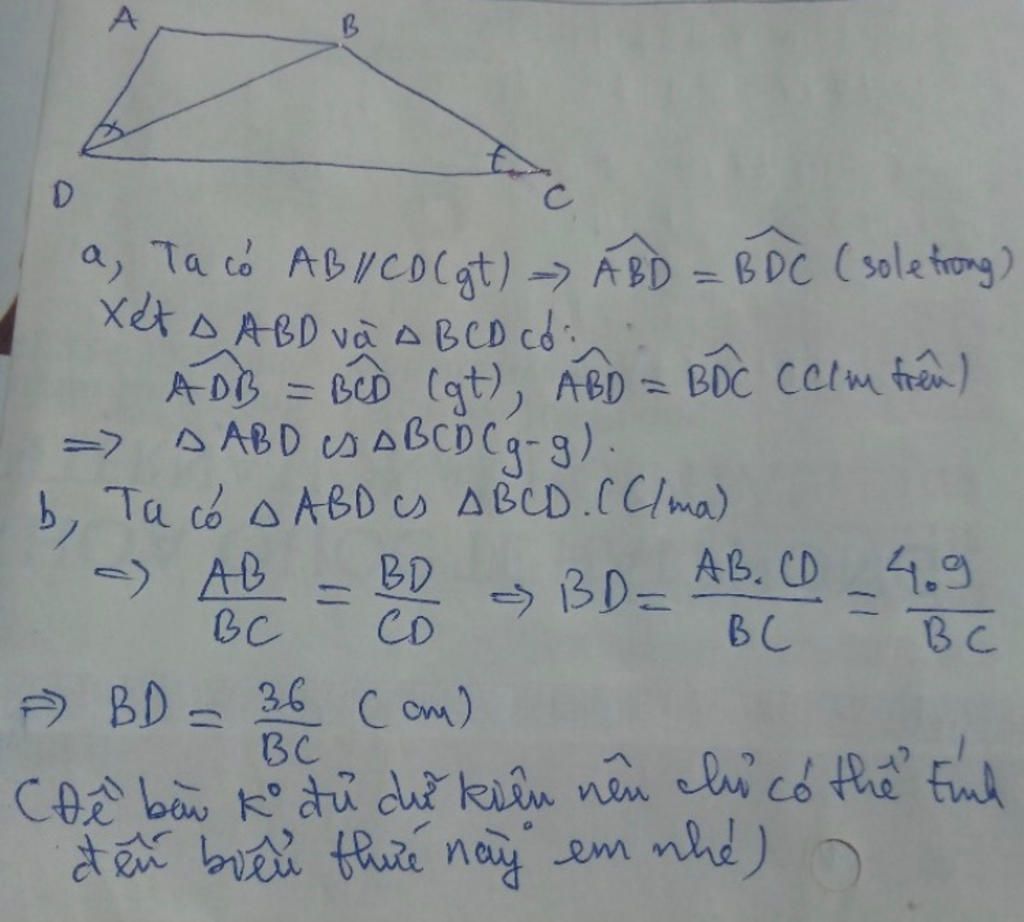 A B
D C
a, Ta có AB//CD(gt) => \widehat{ABD} = \widehat{BDC} (sole trong)
Xét △ ABD và △ BCD có:
\widehat{ADB} = \widehat{BCD} (gt), \widehat{ABD} = \widehat{BDC} (C/m trên)
=> △ ABD ∽ △BCD(g-g).
b, Ta có △ ABD ∽ △BCD.(C/ma)
=> AB/BC = BD/CD => BD = AB.CD/BC = 4.9/BC
=> BD = 36/BC (cm)
(Đề bài k° đủ dữ kiện nên chỉ có thể tính
đến biểu thức này em nhé)